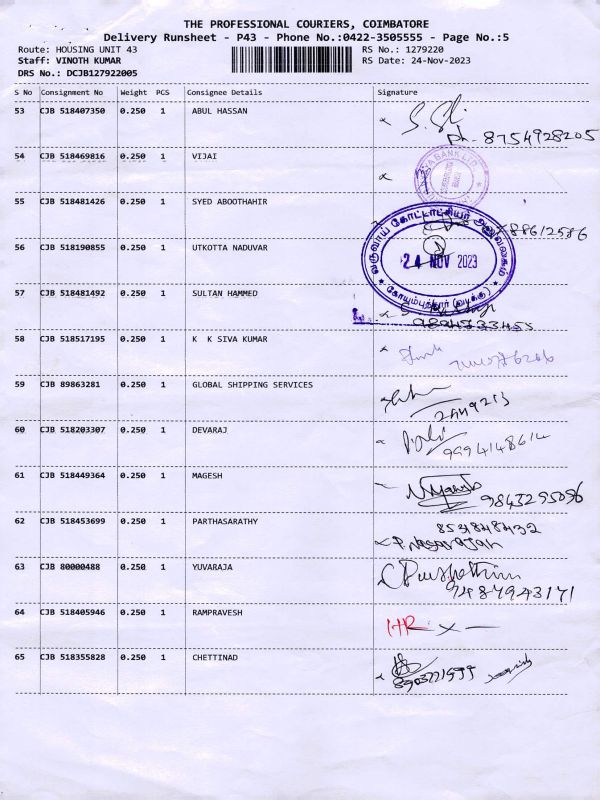 THE PROFESSIONAL COURIERS, COIMBATORE
Delivery Runsheet - P43 - Phone No.:0422-3505555 - Page No.:5
Route: HOUSING UNIT 43
RS No.: 1279220
Staff: VINOTH KUMAR
RS Date: 24-Nov-2023
DRS No.: DCJB127922005
S No Consignment No Weight PCS Consignee Details Signature
53 CJB 518407350 0.250 1 ABUL HASSAN
ph. 8754928205
54 CJB 518469816 0.250 1 VIJAI
55 CJB 518481426 0.250 1 SYED ABOOTHAHIR
வருவாய் கோட்டாட்சியர் அலுவலகம்
56 CJB 518190855 0.250 1 UTKOTTA NADUVAR
24 NOV 2023
கோயம்புத்தூர் (வடக்கு)
57 CJB 518481492 0.250 1 SULTAN HAMMED
58 CJB 518517195 0.250 1 K K SIVA KUMAR
59 CJB 89863281 0.250 1 GLOBAL SHIPPING SERVICES
60 CJB 518203307 0.250 1 DEVARAJ
9994148614
61 CJB 518449364 0.250 1 MAGESH
9843295096
62 CJB 518453699 0.250 1 PARTHASARATHY
8531848432
P. Nagarajan
63 CJB 80000488 0.250 1 YUVARAJA
9487943171
64 CJB 518405946 0.250 1 RAMPRAVESH
HR
65 CJB 518355828 0.250 1 CHETTINAD